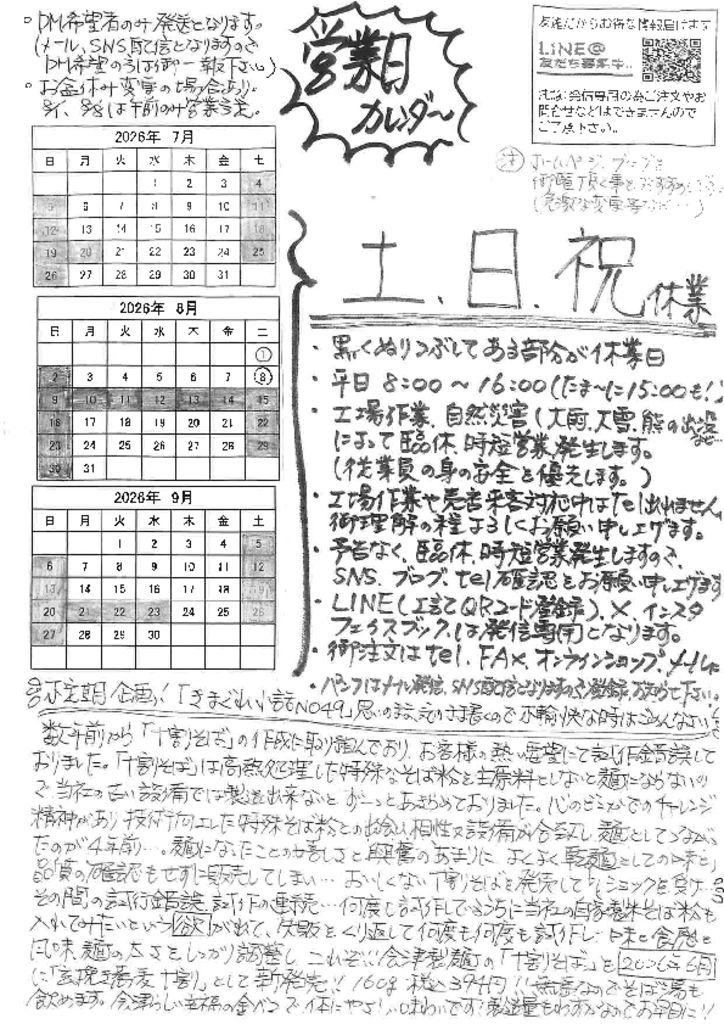 。DM希望者のみ発送となります。
(メール、SNS配信となりますので
DM希望の方は御一報下さい)
。お盆休み変更の場合あり。
8/1、8/8は午前のみ営業予定。
営業日
カレンダー
友達だからお得な情報届けます
LINE@
友だち募集中..
注意:発信専用の為ご注文やお
問合せなどはできませんので
ご了承下さい。
注 ホームページ、ブログを
御覧頂く事をおすすめします
(急激な変更等など…)
2026年 7月
日 月 火 水 木 金 土
1 2 3 4
5 6 7 8 9 10 11
12 13 14 15 16 17 18
19 20 21 22 23 24 25
26 27 28 29 30 31
2026年 8月
日 月 火 水 木 金 土
①
2 3 4 5 6 7 ⑧
9 10 11 12 13 14 15
16 17 18 19 20 21 22
23 24 25 26 27 28 29
30 31
2026年 9月
日 月 火 水 木 金 土
1 2 3 4 5
6 7 8 9 10 11 12
13 14 15 16 17 18 19
20 21 22 23 24 25 26
27 28 29 30
土、日、祝 休業
・黒くぬりつぶしてある部分が休業日
・平日 8:00〜16:00(たま〜に15:00も!)
・工場作業、自然災害(大雨、大雪、熊の出没など…
によって臨休、時短営業発生します。
(従業員の身の安全を優先します。)
・工場作業や売店来客対応中はtel出れません。
御理解の程よろしくお願い申し上げます。
・予告なく、臨休、時短営業発生しますので、
SNS、ブログ、tel確認をお願い申し上げます
・LINE(上記QRコード登録)、X、インスタ
フェイスブック、は発信専用となります。
・御注文はtel、FAX、オンラインショップ、メールに
・パンフはメール発信、SNS配信となりますので登録、お知らせ下さい!
不定期企画!「きまぐれ小話NO49」思いのまま、そのまま書くので不愉快な時はごめんなさい
数年前から「十割そば」の作成に取り組んでおり、お客様の熱い要望にて試作錯誤して
おりました。「十割そば」は高熱処理した特殊なそば粉を主原料としないと麺にならないの
で当社の古い設備では製造出来ないとずーっとあきらめておりました。心のどこかでのチャレンジ
精神があり技術向上した特殊そば粉との出会い相性又設備が合致し麺としてつながっ
たのが4年前…。麺になったことの嬉しさと興奮のあまりに、よくよく乾麺としての味と
品質の確認もせずに販売してしまい…おいしくない十割そばを発売してしまいショックを受け…
その間の試行錯誤、試作の連続…何度も試作しているうちに当社の自家製粉そば粉も
入れてみたいという欲がでて、失敗をくり返して何度も何度も試作し、味と食感と
風味、麺の太さをしっかり調整し、これぞ!!会津製麺の「十割そば」を2026年6月
に「玄挽き蕎麦十割」として新発売!! 160g 税込394円!! 無塩なのでそば湯も
飲めます。会津らしい幸福の金べこで、体にやさしい味わいです!製造量もわずかなのでお早目に!!